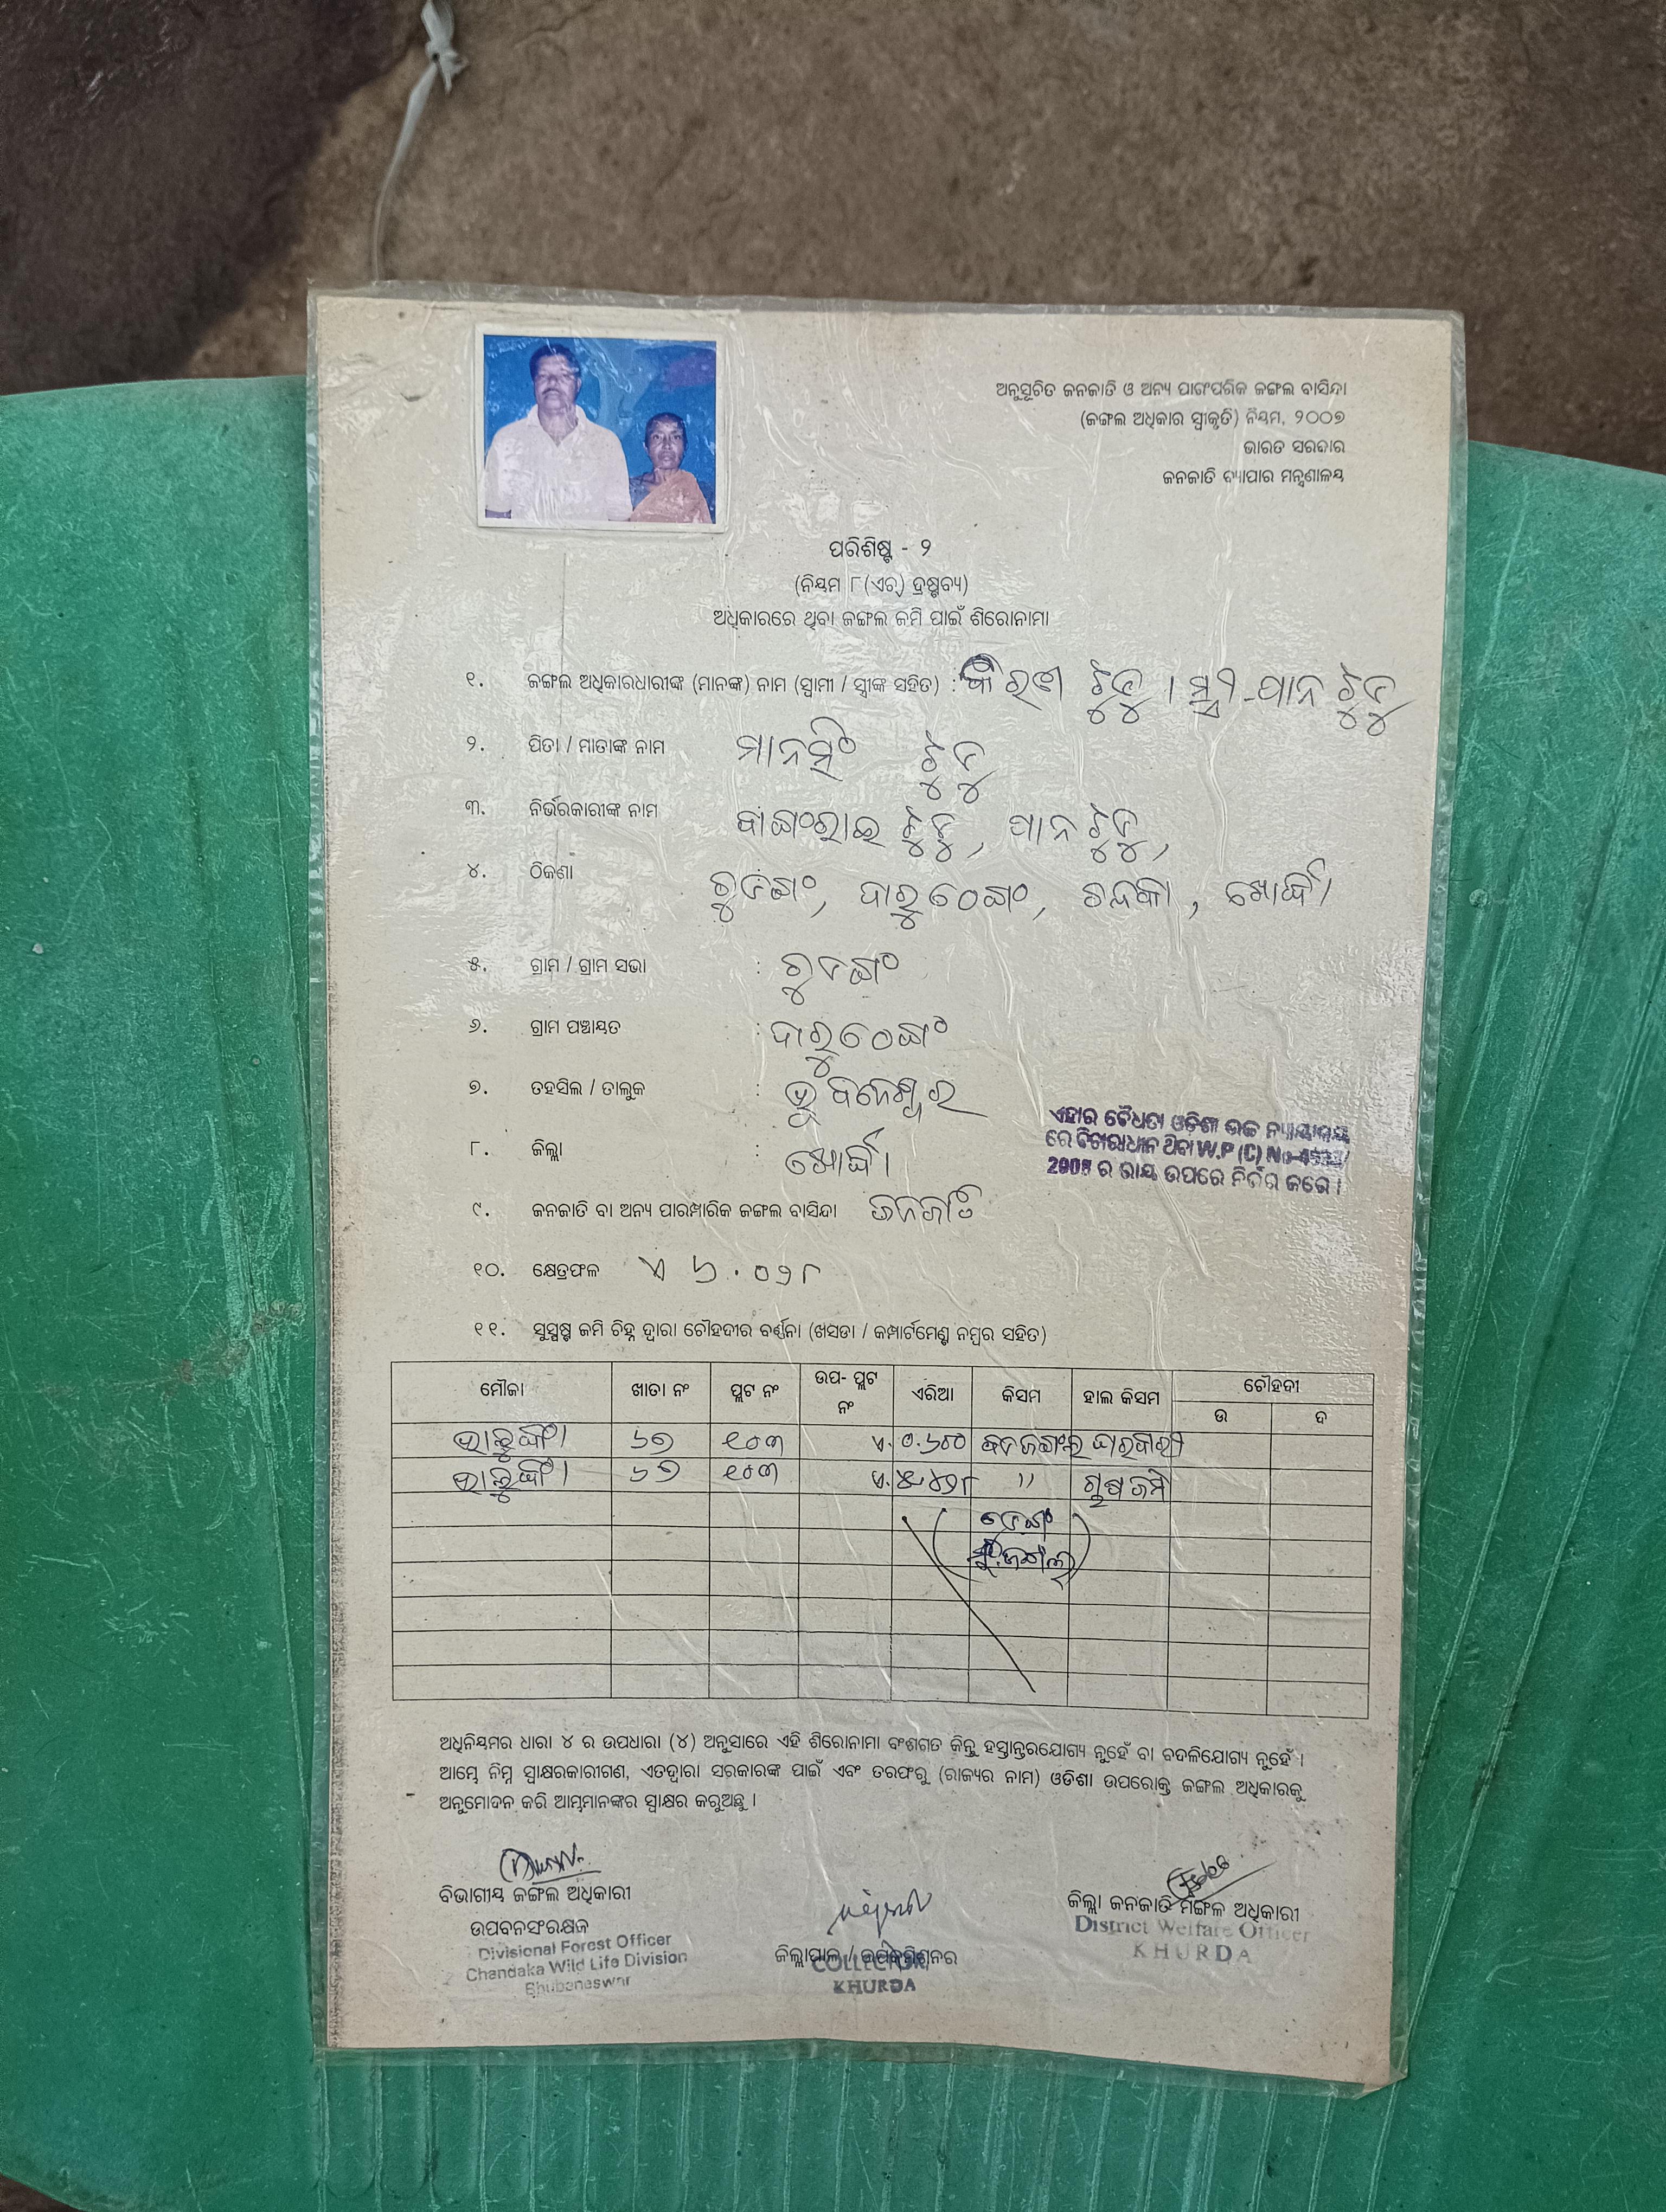 ଅନୁସୂଚିତ ଜନଜାତି ଓ ଅନ୍ୟ ପାରଂପରିକ ଜଙ୍ଗଲ ବାସିନ୍ଦା
(ଜଙ୍ଗଲ ଅଧିକାର ସ୍ୱୀକୃତି) ନିୟମ, ୨୦୦୭
ଭାରତ ସରକାର
ଜନଜାତି ବ୍ୟାପାର ମନ୍ତ୍ରଣାଳୟ
ପରିଶିଷ୍ଟ - ୨
(ନିୟମ ୮(ଏଚ୍) ଦ୍ରଷ୍ଟବ୍ୟ)
ଅଧିକାରରେ ଥିବା ଜଙ୍ଗଲ ଜମି ପାଇଁ ଶିରୋନାମା
୧. ଜଙ୍ଗଲ ଅଧିକାରଧାରୀଙ୍କ (ମାନଙ୍କ) ନାମ (ସ୍ୱାମୀ / ସ୍ତ୍ରୀଙ୍କ ସହିତ) : ଟୁଡୁ । ସ୍ତ୍ରୀ-ପାନ ଟୁଡୁ
୨. ପିତା / ମାତାଙ୍କ ନାମ ମାନସିଂ ଟୁଡୁ
୩. ନିର୍ଭରକାରୀଙ୍କ ନାମ ଟୁଡୁ, ପାନ ଟୁଡୁ,
୪. ଠିକଣା ଦାରୁଠେଙ୍ଗ, ଚନ୍ଦକା, ଖୋର୍ଦ୍ଧା
୫. ଗ୍ରାମ / ଗ୍ରାମ ସଭା :
୬. ଗ୍ରାମ ପଞ୍ଚାୟତ : ଦାରୁଠେଙ୍ଗ
୭. ତହସିଲ / ତାଲୁକ : ଭୁବନେଶ୍ୱର
୮. ଜିଲ୍ଲା ଖୋର୍ଦ୍ଧା
ଏହାର ବୈଧତା ଓଡିଶା ଉଚ୍ଚ ନ୍ୟାୟାଳୟ
ରେ ବିଚାରାଧୀନ ଥିବା W.P (C) No-
2008 ର ରାୟ ଉପରେ ନିର୍ଭର କରେ ।
୯. ଜନଜାତି ବା ଅନ୍ୟ ପାରମ୍ପାରିକ ଜଙ୍ଗଲ ବାସିନ୍ଦା ଜନଜାତି
୧୦. କ୍ଷେତ୍ରଫଳ ଏ ୬.୦୨୮
୧୧. ସୁସ୍ପଷ୍ଟ ଜମି ଚିହ୍ନ ଦ୍ୱାରା ଚୌହଦୀର ବର୍ଣ୍ଣନା (ଖସଡା / କମ୍ପାର୍ଟମେଣ୍ଟ ନମ୍ବର ସହିତ)
ମୌଜା ଖାତା ନଂ ପ୍ଲଟ ନଂ ଉପ- ପ୍ଲଟ ନଂ ଏରିଆ କିସମ ହାଲ କିସମ ଚୌହଦୀ
ଉ ଦ
୬୭ ୧୦୩ ଏ.୦.୬୦୦ ଘରବାରୀ
୬୭ ୧୦୩ " ଚାଷ ଜମି
ଅଧିନିୟମର ଧାରା ୪ ର ଉପଧାରା (୪) ଅନୁସାରେ ଏହି ଶିରୋନାମା ବଂଶଗତ କିନ୍ତୁ ହସ୍ତାନ୍ତରଯୋଗ୍ୟ ନୁହେଁ ବା ବଦଳିଯୋଗ୍ୟ ନୁହେଁ ।
ଆମ୍ଭେ ନିମ୍ନ ସ୍ୱାକ୍ଷରକାରୀଗଣ, ଏତଦ୍ୱାରା ସରକାରଙ୍କ ପାଇଁ ଏବଂ ତରଫରୁ (ରାଜ୍ୟର ନାମ) ଓଡିଶା ଉପରୋକ୍ତ ଜଙ୍ଗଲ ଅଧିକାରକୁ
ଅନୁମୋଦନ କରି ଆମ୍ଭମାନଙ୍କର ସ୍ୱାକ୍ଷର କରୁଅଛୁ ।
ବିଭାଗୀୟ ଜଙ୍ଗଲ ଅଧିକାରୀ
ଉପବନସଂରକ୍ଷକ
Divisional Forest Officer
Chandaka Wild Life Division
Bhubaneswar
ଜିଲ୍ଲାପାଳ / ଉପକମିଶ୍ନର
COLLECTOR
KHURDA
ଜିଲ୍ଲା ଜନଜାତି ମଙ୍ଗଳ ଅଧିକାରୀ
District Welfare Officer
KHURDA